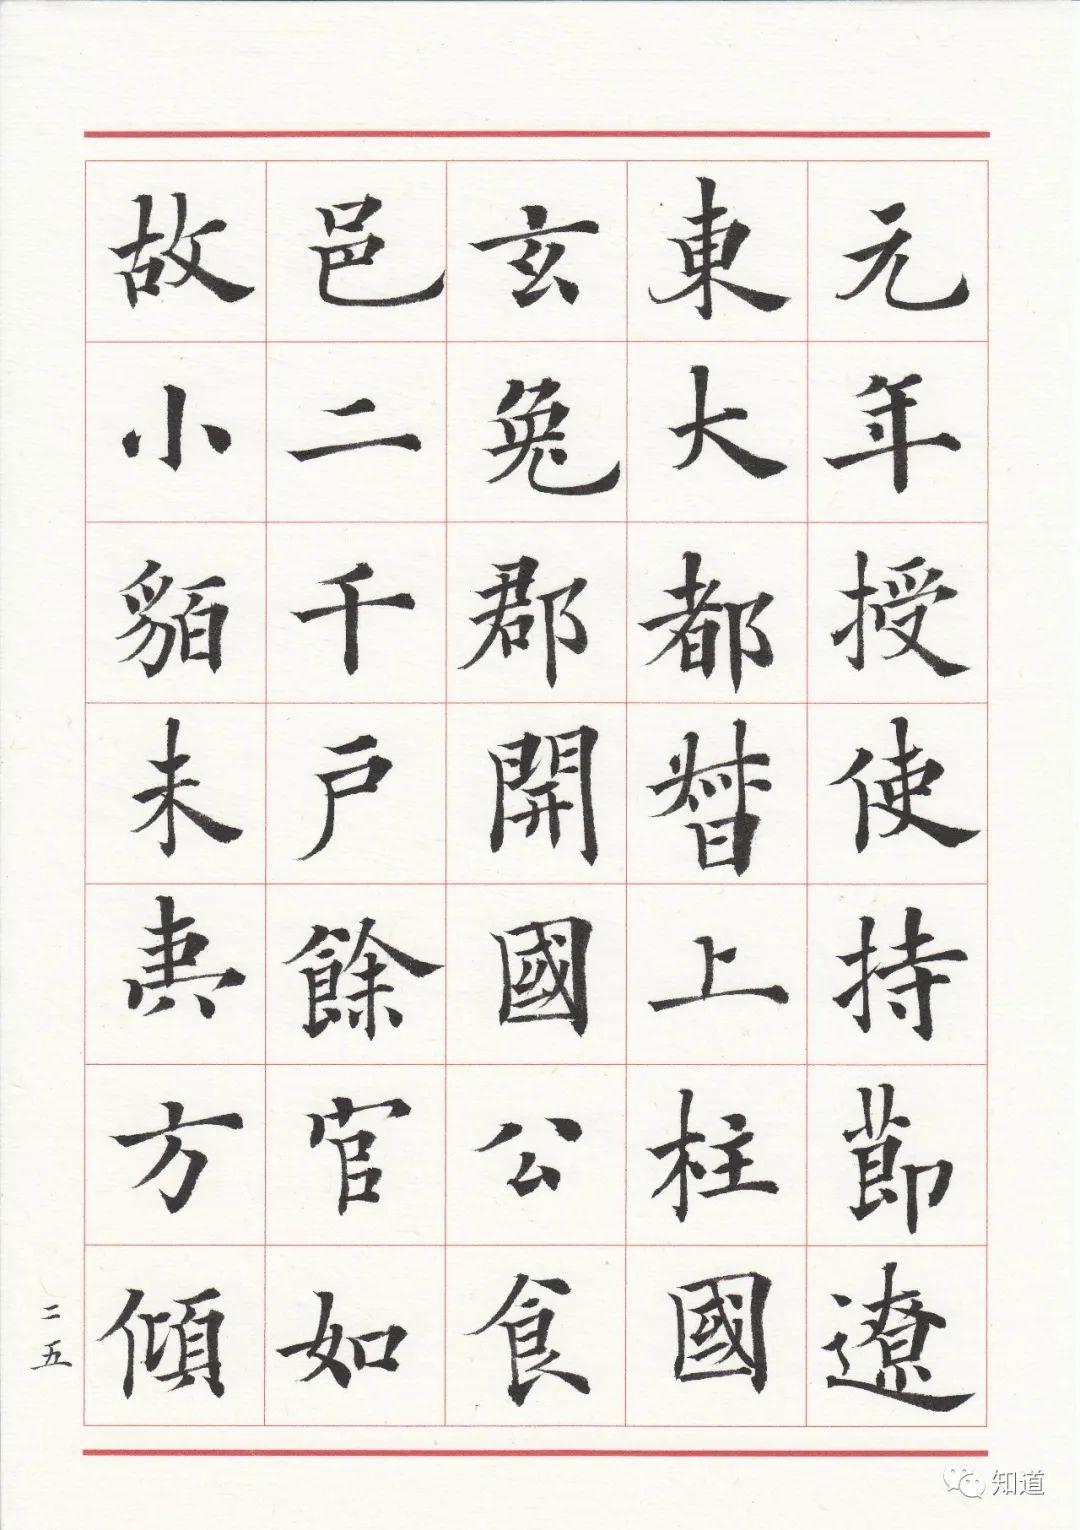 元年授使持節遼
東大都督上柱國
玄兔郡開國公食
邑二千户餘官如
故小貊未夷方傾
二五
知道